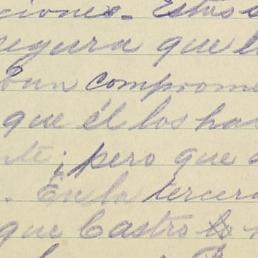 ciones. Estos
segura que l
ban comprome
que él los ha
nte; pero que
. En la tercera
que Castro lo